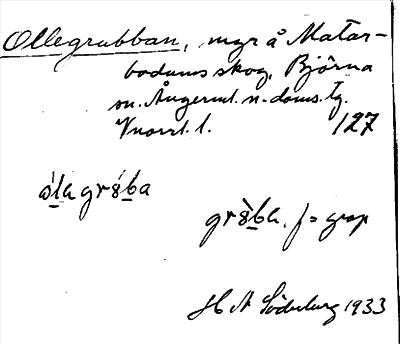 Ollegrubban, myr å Matar-
bodums skog, Björna
sn. Ångerml. n. doms. tg.
Vnorrl. l. 127
gròba, f = grop
H A Söderberg 1933